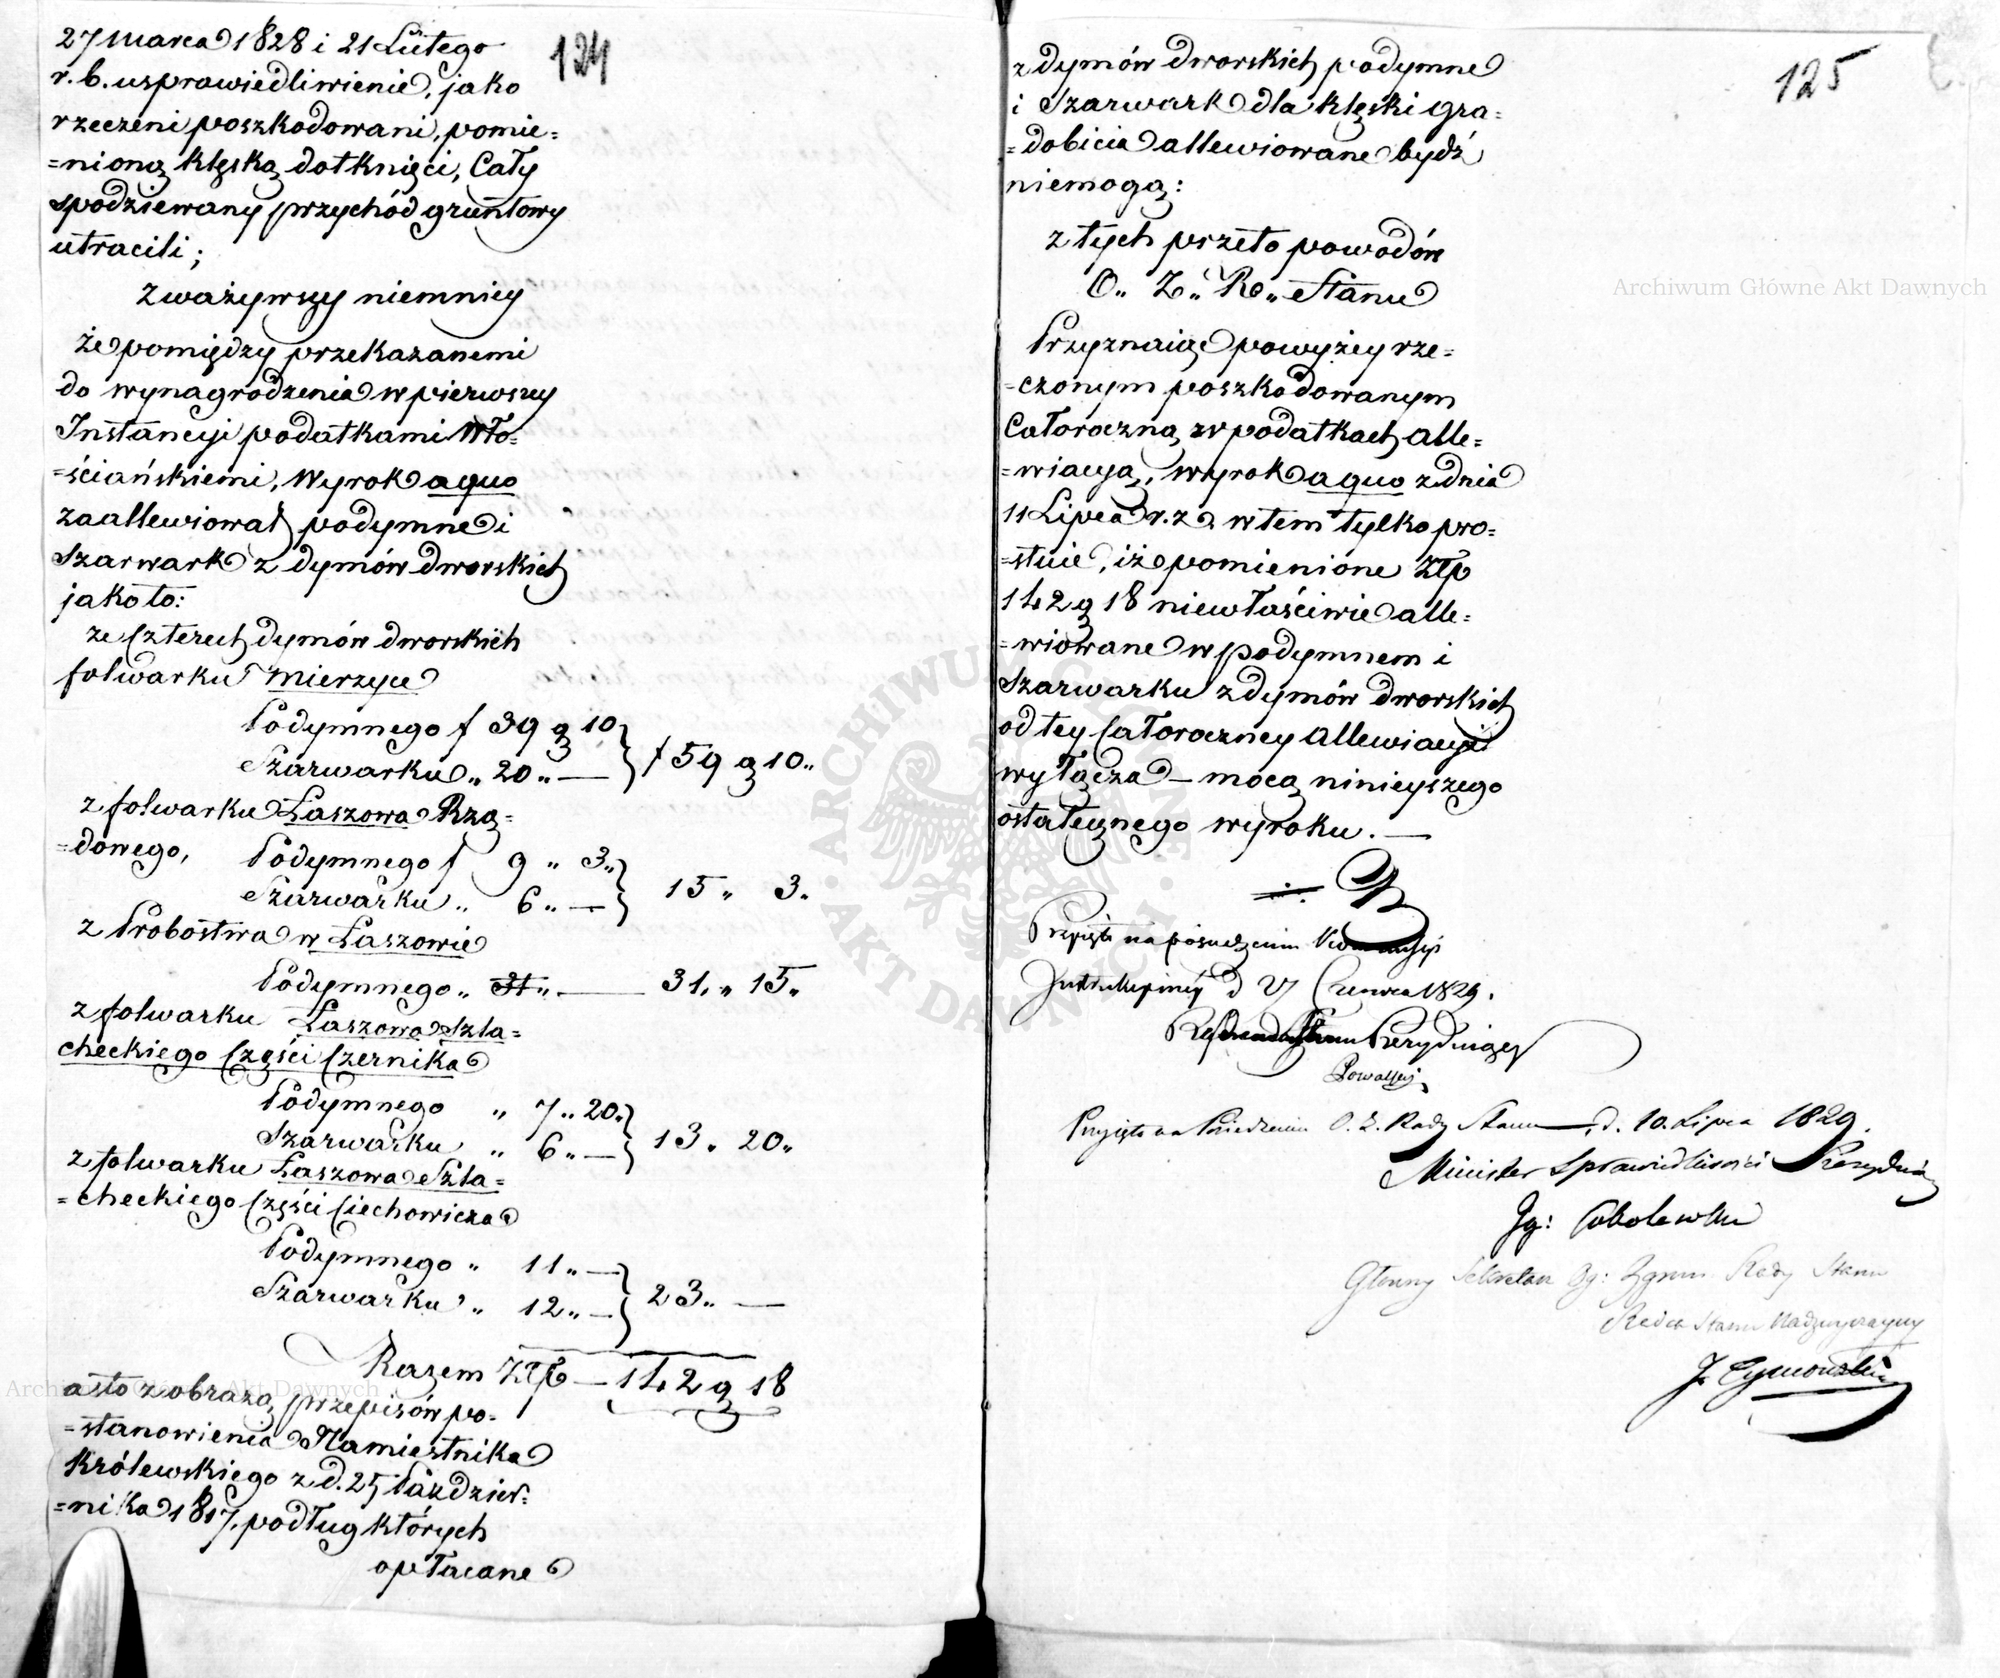 124
27 Marca 1828 i 21 Lutego
r. b. usprawiedliwienie, jako
rzeczeni poszkodowani, pomie=
=nioną klęską dotknięci, Cały
spodziewany przychód gruntowy
utracili;
Zważywszy niemniey
że pomiędzy przekazanemi
do wynagrodzenia w pierwszey
Instancyi podatkami Wło=
=ściańskiemi, Wyrok a quo
zaallewiował podymne i
Szarwark z dymów dworskich
jako to:
ze Czterech dymów dworskich
folwarku Mierzyce
Podymnego f 39 g 10
Szarwarku „ 20 „ — } f 59 g 10 „
z folwarku Łaszowa Rzą=
=dowego, Podymnego f 9 „ 3 „
Szarwarku „ 6 „ — } 15 „ 3 „
z Probostwa w Łaszowie
Podymnego „ 31 „ — 31 „ 15 „
z folwarku Łaszowa Szla=
checkiego Części Czernika
Podymnego „ 7 „ 20 „
Szarwarku „ 6 „ — } 13 „ 20 „
z folwarku Łaszowa Szla=
=checkiego Części Ciechowicza
Podymnego „ 11 „ —
Szarwarku „ 12 „ — } 23 „ —
Razem Złp — 142 g 18
a to z obrazą przepisów po=
=stanowienia Namiestnika
Królewskiego z d. 25 Paździer=
=nika 1817, podług których
opłacane
125
z dymów dworskich podymne
i Szarwark dla klęski gra=
=dobicia allewiowane bydź
niemogą:
z tych przeto powodów
O „ Z „ R „ Stanu
Przyznaiąc powyżey rze=
=czonym poszkodowanym
Całoroczną w podatkach alle=
=wiacyą, wyrok a quo z dnia
11 Lipca r. z. w tem tylko pro=
=stuie, iż pomienione Złp
142 g 18 niewłaściwie alle=
=wiowane w podymnem i
Szarwarku z dymów dworskich
od tey Całoroczney allewiacyi
wyłącza — mocą ninieyszego
ostatecznego wyroku. —
Przyięto na posiedzeniu
d 27 Czerwca 1829.
Referendarz Stanu Prezyduiący
Przyięto na Posiedzeniu O. Z. Rady Stanu d. 10. Lipca 1829.
Minister Sprawiedliwości Prezyduią
Sobolewski
Główny Sekretarz Rady Stanu
Radca Stanu Nadzwyczayny
Archiwum Główne Akt Dawnych
Archiwum Główne Akt Dawnych
ARCHIWUM GŁÓWNE · AKT DAWNYCH ·